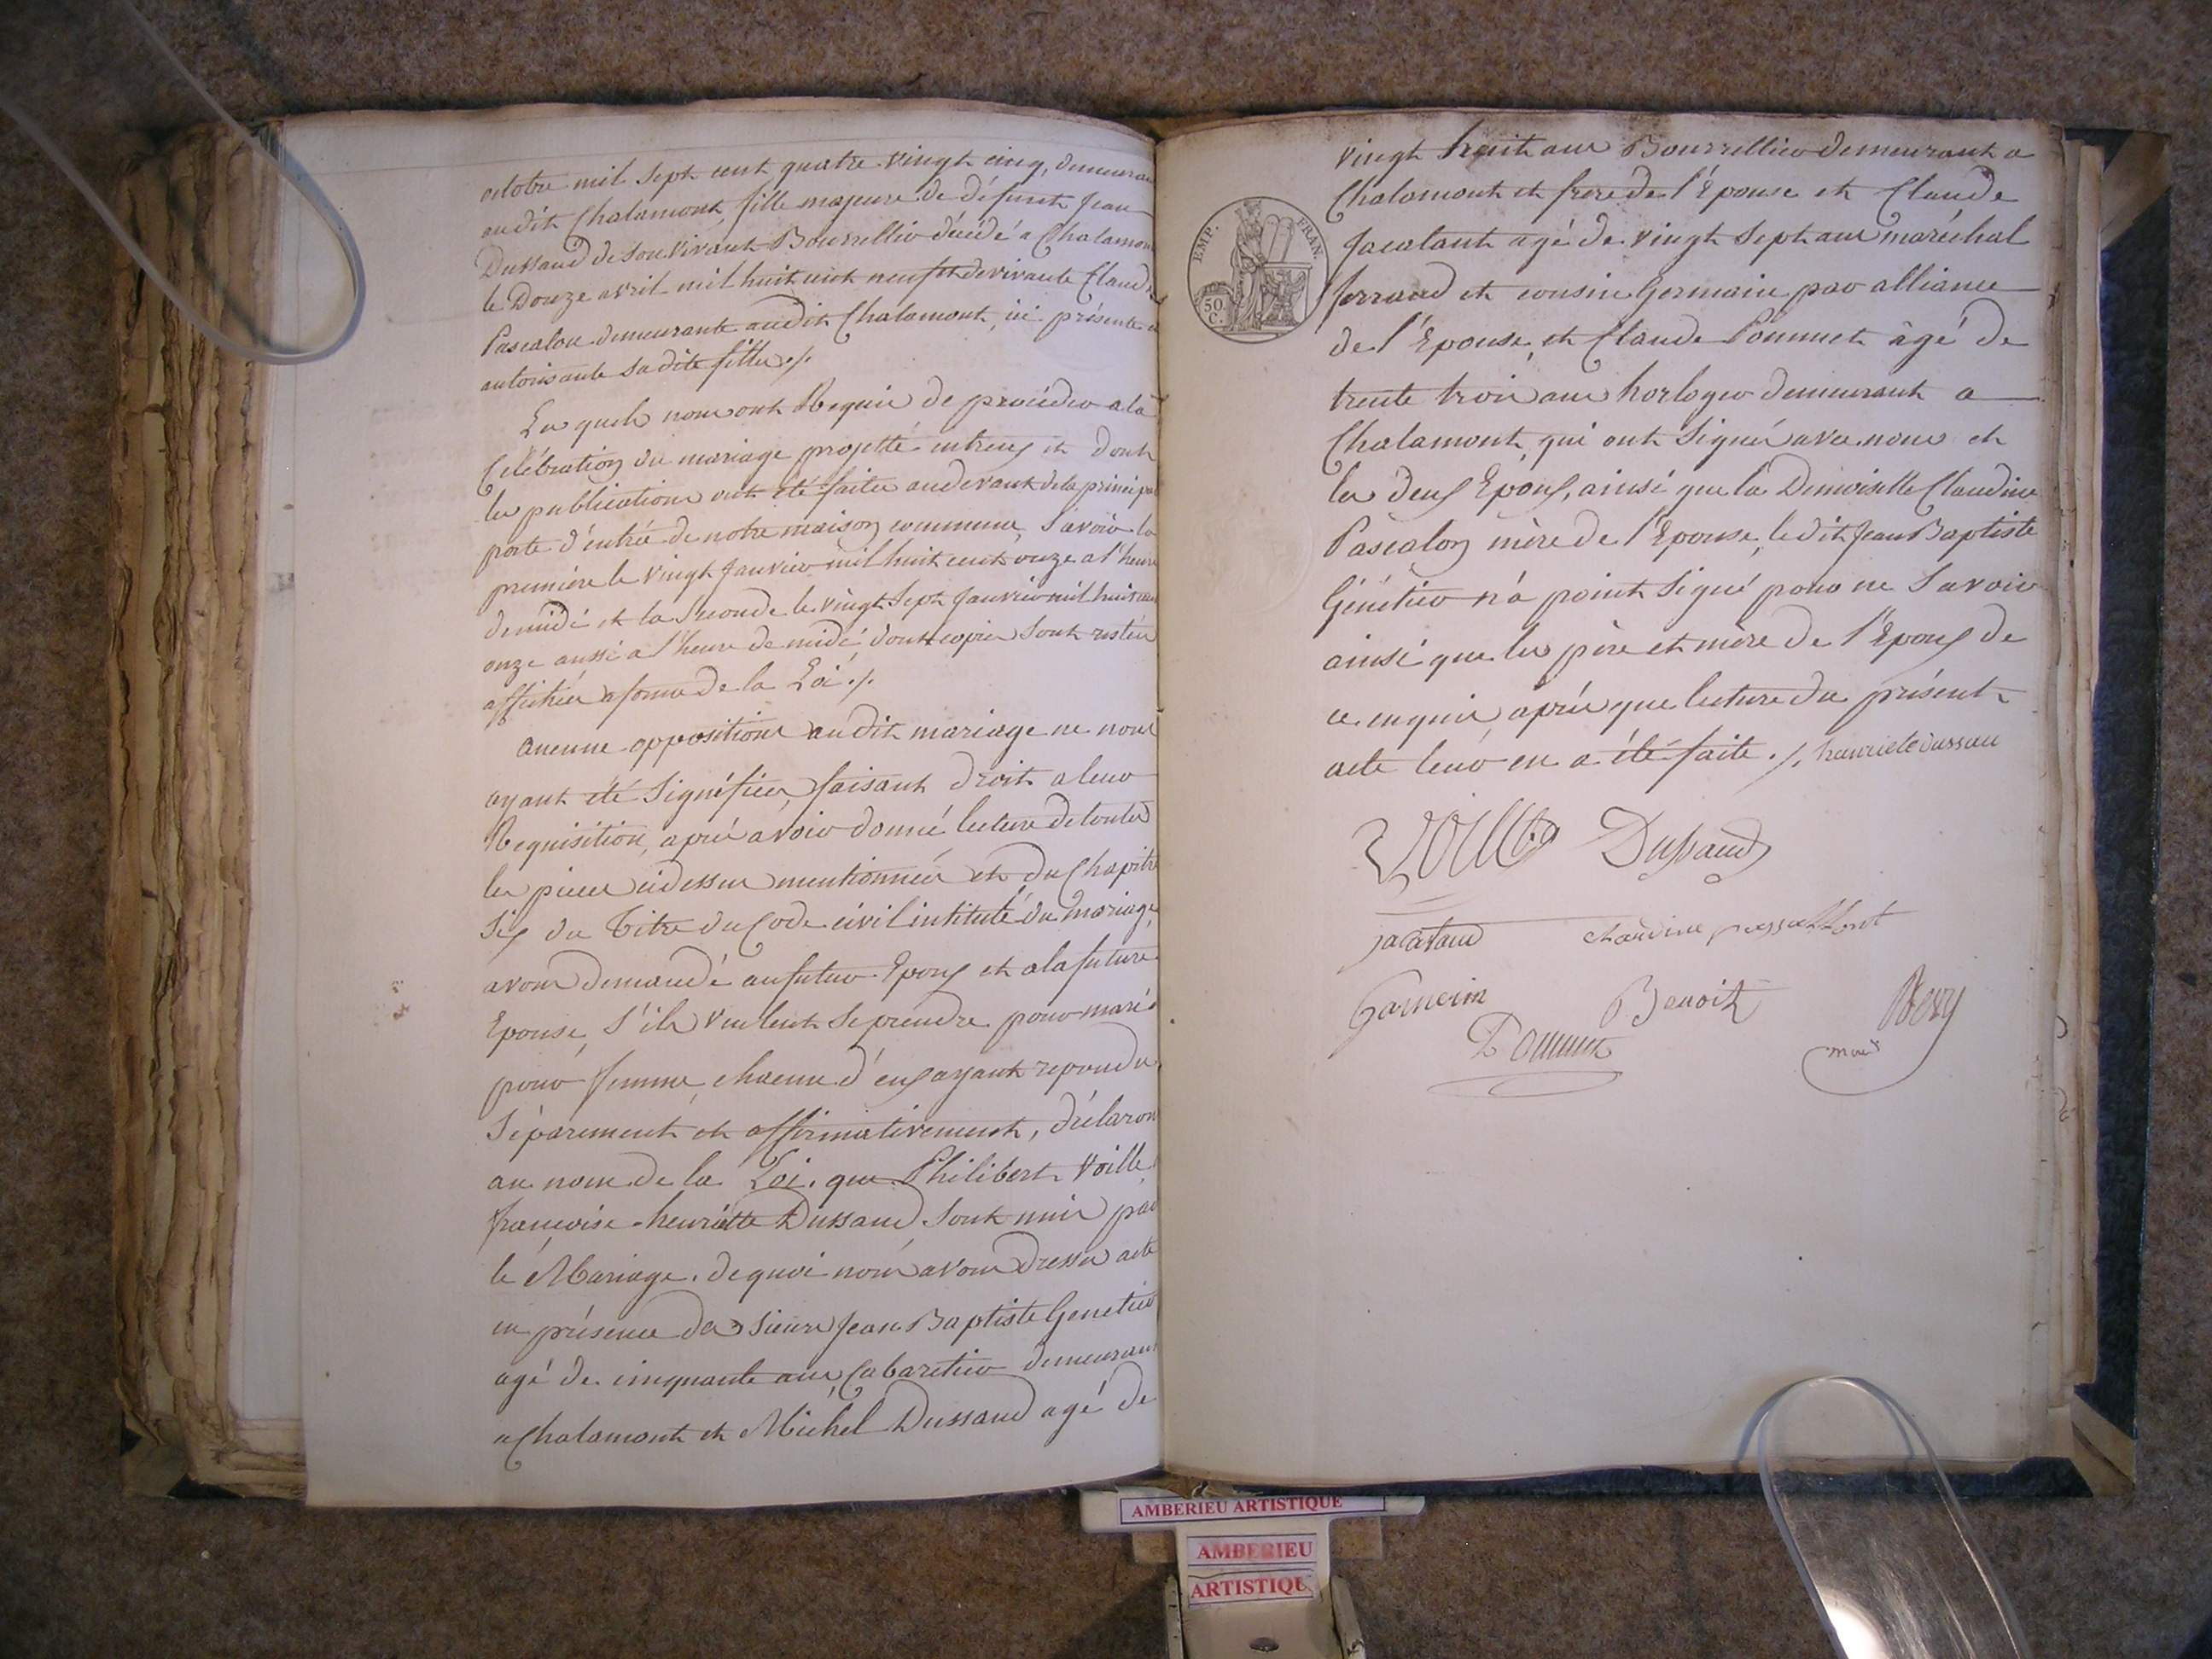 octobre mil sept cent quatre vingt cinq, demeuran
audit Chalamont, fille majeure de défunt Jean
Dussaud de son vivant Bourrellier décédé a Chalamon
le Douze avril mil huit cent neuf et de vivante Claud
Pascalon demeurante audit Chalamont, ici présente
autorisante sa dite fille ./.
Les quels nous ont Requis de procéder a la
Célébration du mariage projetté entreux et dont
les publications ont été faites au devant de la princip
porte d'entrée de notre maison commune, savoir la
première le vingt Janvier mil huit cent onze a l'heure
de midi et la seconde le vingt sept Janvier mil huit cen
onze aussi a l'heure de midi, dont copies sont restées
affichées a forme de la Loi ./.
aucunne oppositions audit mariage ne nous
ayant été Signéfiées, faisant droit a leur
Requisition, après avoir donné lecture de toutes
les pièces cidessus mentionnées et du Chapitre
Six du Titre du Code civil intitulé du Mariage,
avons demandé au futur Epoux et a la future
Epouse, s'ils veulent se prendre pour mari &
pour femme, chacun d'eux ayant repondu
Séparement et affirmativement, déclaron
au nom de la Loi, que Philibert Voille
françoise-henriette Dussaud, sont unis par
le Mariage. de quoi nous avons Dressé acte
en présence des sieurs Jean Baptiste Genetier
agé de cinquante ans, Cabaretier demeurant
a Chalamont et Michel Dussaud agé de
vingt huit ans Bourrellier demeurant a
Chalamont et frere de l'Epouse et Claude
Jacalant agé de vingt sept ans maréchal
ferrand et cousin Germain par alliance
de l'Epouse, et Claude Pommet âgé de
trente trois ans horloger demeurant a
Chalamont, qui ont Signés avec nous et
les deux Epoux, ainsi que la Demoiselle Claudine
Pascalon mère de l'Epouse, le dit Jean Baptiste
Génétier n'a point Signé pour ne Savoir
ainsi que les père et mère de l'Epoux de
ce enquis, après que lecture du présent
acte leur en a été faite ./. henriete dussau
EMP. FRAN.
50
C.
Dussaud
Garnerin
Benoit
AMBERIEU ARTISTIQUE
AMBERIEU
ARTISTIQU